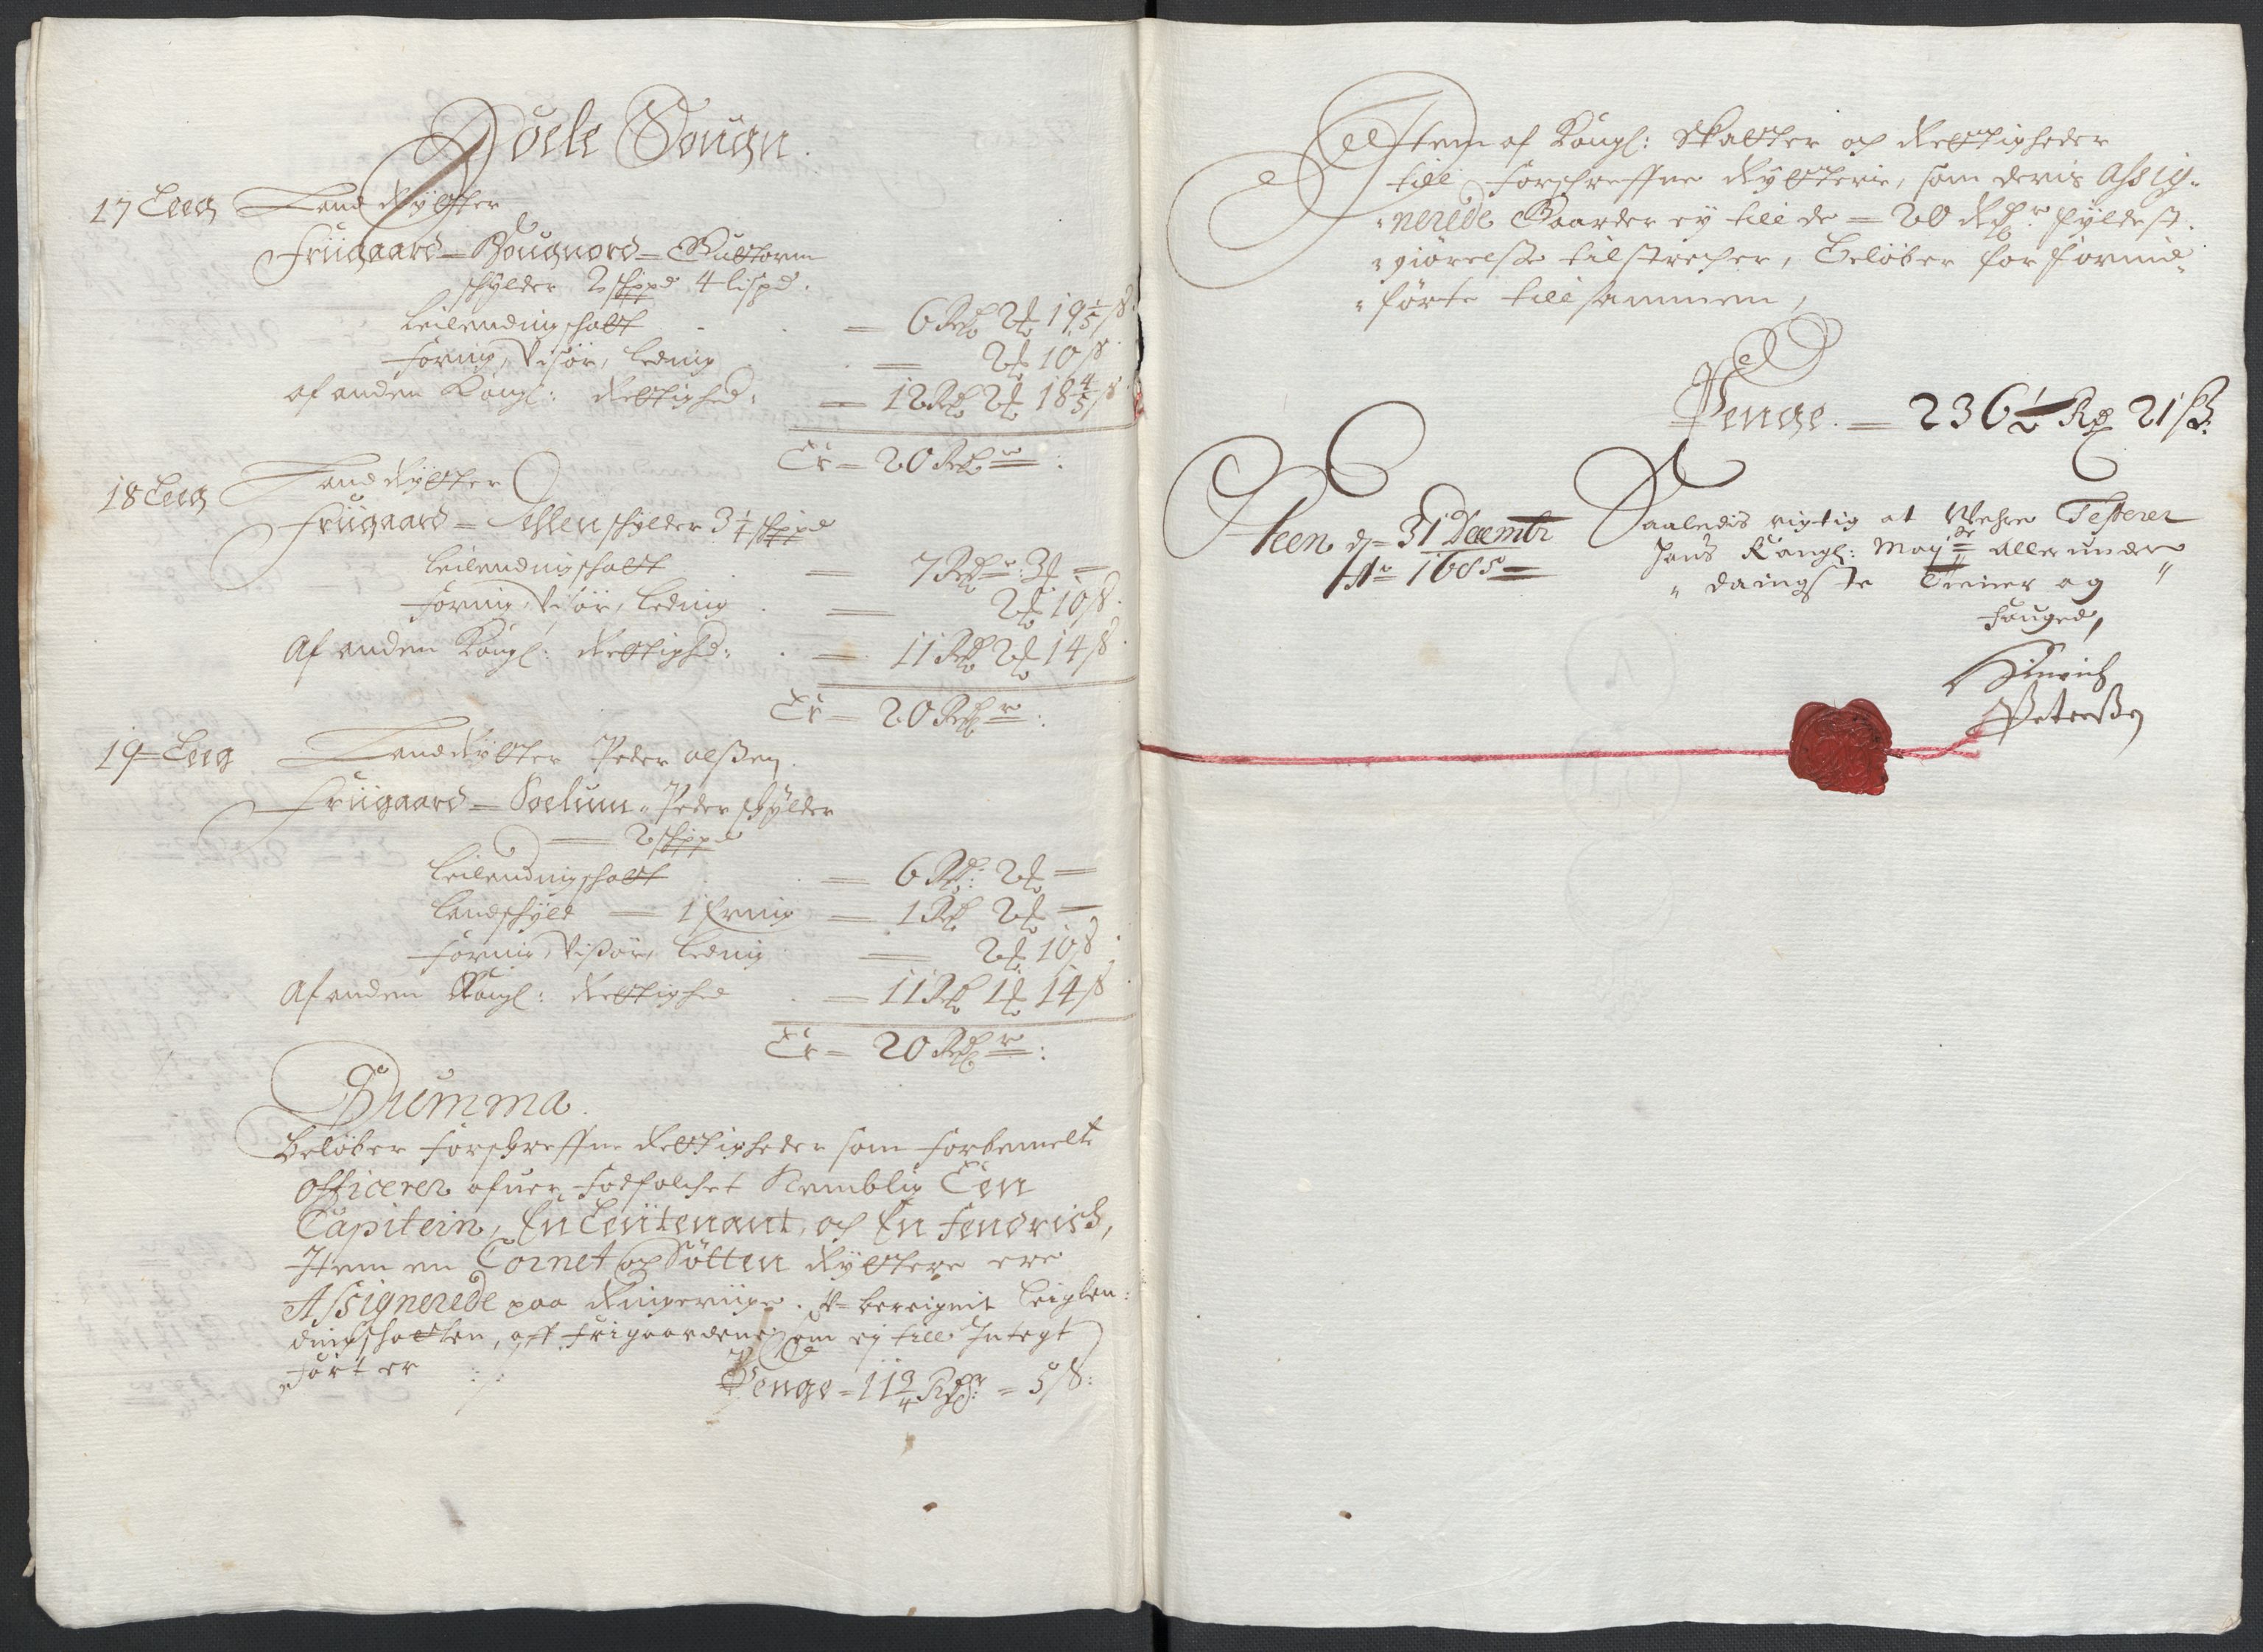 Voele Sougn.
17 Leeg Land Rytter
Friigaard = Bougnord = Guttorm
schylder 2 schppd 4 lispd.
Leilendingschatt = 6 Rdr 2 ℔ 19 1/5 ß.
Foring, Visør, Leding = 2 ℔ 10 ß.
af anden Kongl: Rettighed: = 12 Rdr 2 ℔ 18 4/5 ß.
Er = 20 Rdr:
18 Leeg Land Rytter
Friigaard = schylder 3 1/4 schppd
Leilendingschatt = 7 Rdr: 3 ℔ =
Foring, Visør, Leding = 2 ℔ 10 ß.
Af anden Kongl: Rettighd: = 11 Rdr 2 ℔ 14 ß.
Er = 20 Rdr:
19 Leeg Land Rytter Peder olsßen.
Friigaard = Soelum = Peder schylder
= 2 schppd
Leilendingschatt = 6 Rdr: 2 ℔ =
Landschyld = 1 = 1 Rdr 2 ℔ =
Foring, Visør, Leding = 2 ℔ 10 ß.
Af anden Kongl: Rettighed = 11 Rdr 1 ℔ 14 ß
Er = 20 Rdr:
Summa.
Beløber forschreffne Rettigheder som forbemelte
Officerer ofuer Fodfolchet Nemblig Een
Capitein, En Leutenant, og En Fendrich,
Item en Cornet og Sötten Ryttere ere
Assignerede paa bereignit Leiglen:
dingschatten, aff Frigaardene som ej till Integt
Ført er :/:
Penge = 11 3/4 Rdr: = 5 ß:
Item af Kongl: Skatter og Rettigheder
till forschreffne Rytterie, som deris Assig-
nerede Gaarder ey till de = 20 Rdr: fyldest-
giørelsße tilstrecher, Beløber for
førte till sammen,
Penge. = 236 1/2 Rd 21 ß:
Skeen d= 31 Decembr
Ao 1685 =
Saaledis rigtig at Wehre Testerer
Hans Kongl: Mayts Allerunder
daingste Tiener og
Fouged,
Hinrich
Petersßen